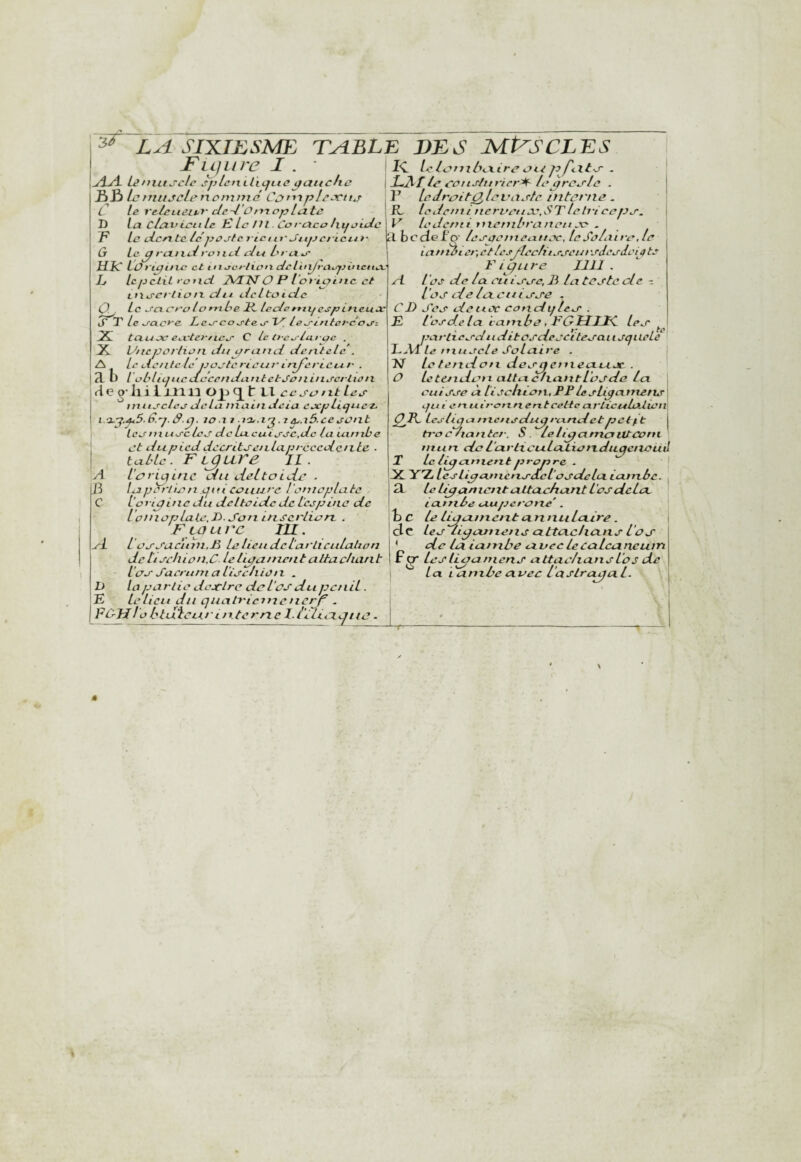 36 LA SIXIESME TABLE DES MVSCLES
Figure I.
AA Le muscle splenitique gauche
BB le muscle nommé Complexus
C le releueur de l'Omoplate
D la Clavicule E le M. Coracohyoide
F le dentelé posterieur Superieur
G le grand rond du bras
HK L'origine et insertion de linfraspineux
L le petit rond MNOP l'origine et
insertion du deltoide
Q le sacrolombe R le demyespineux
ST le sacre. Les costes V les interéos:
X taux externes C le tres large.
X Vne portion du grand dentelé.
Δ le dentelé posterieur inferieur.
a b l'oblique decendant et son insertion
d e g h i l m n o p q t u ce sont les
muscles de la main deia expliquez.
1.2.3.4.5.6.7.8.9.10.11.12.13.14.15. ce sont
les muscles de la cuisse, de la iambe
et du pied decrits en la precedente
table. Figure II.
A l'origine du deltoide.
B la portion qui couure l'omoplate
C l'origine du deltoide de l'espine de
l'omoplate, D. Son insertion.
Figure III.
A l'os sacrum, B le lieu de l'articulation
de l'ischion, C. le ligament attachant
l'os sacrum a l'ischion.
D la partie dextre de l'os du penil.
E le lieu du quatrieme nerf.
FGH l'obtuteur interne I. l'iliaque.
K le lombaire ou psoats.
LM le cousturier * le gresle.
P le droit Q le vaste interne.
R le demi nerveux, ST le triceps.
V le demi membraneux.
a b c d e f g les gemeaux, le Solaire, le
iambier, et les flechisseurs des doigts
Figure IIII.
A l'os de la cuisse, B la teste de
l'os de la cuisse.
CD Ses deux condyles.
E l'os de la iambe, FGHIK les
parties du dit os descites au squelete
LM le muscle Solaire.
N le tendon des gemeaux.
O le tendon attachant l'os de la
cuisse à l'ischion, PP les ligamens
qui enuironnent cette articulation
QR les ligamens du grand et petit
trochanter. S. le ligament com
mun de l'articulation du genouil
T le ligament propre.
XYZ les ligamens de l'os de la iambe.
a le ligament attachant l'os de la
iambe au peroné.
b c le ligament annulaire.
d e les ligamens attachans l'os
de la iambe avec le calcaneum
f g les ligamens attachans l'os de
la iambe avec l'astragal.